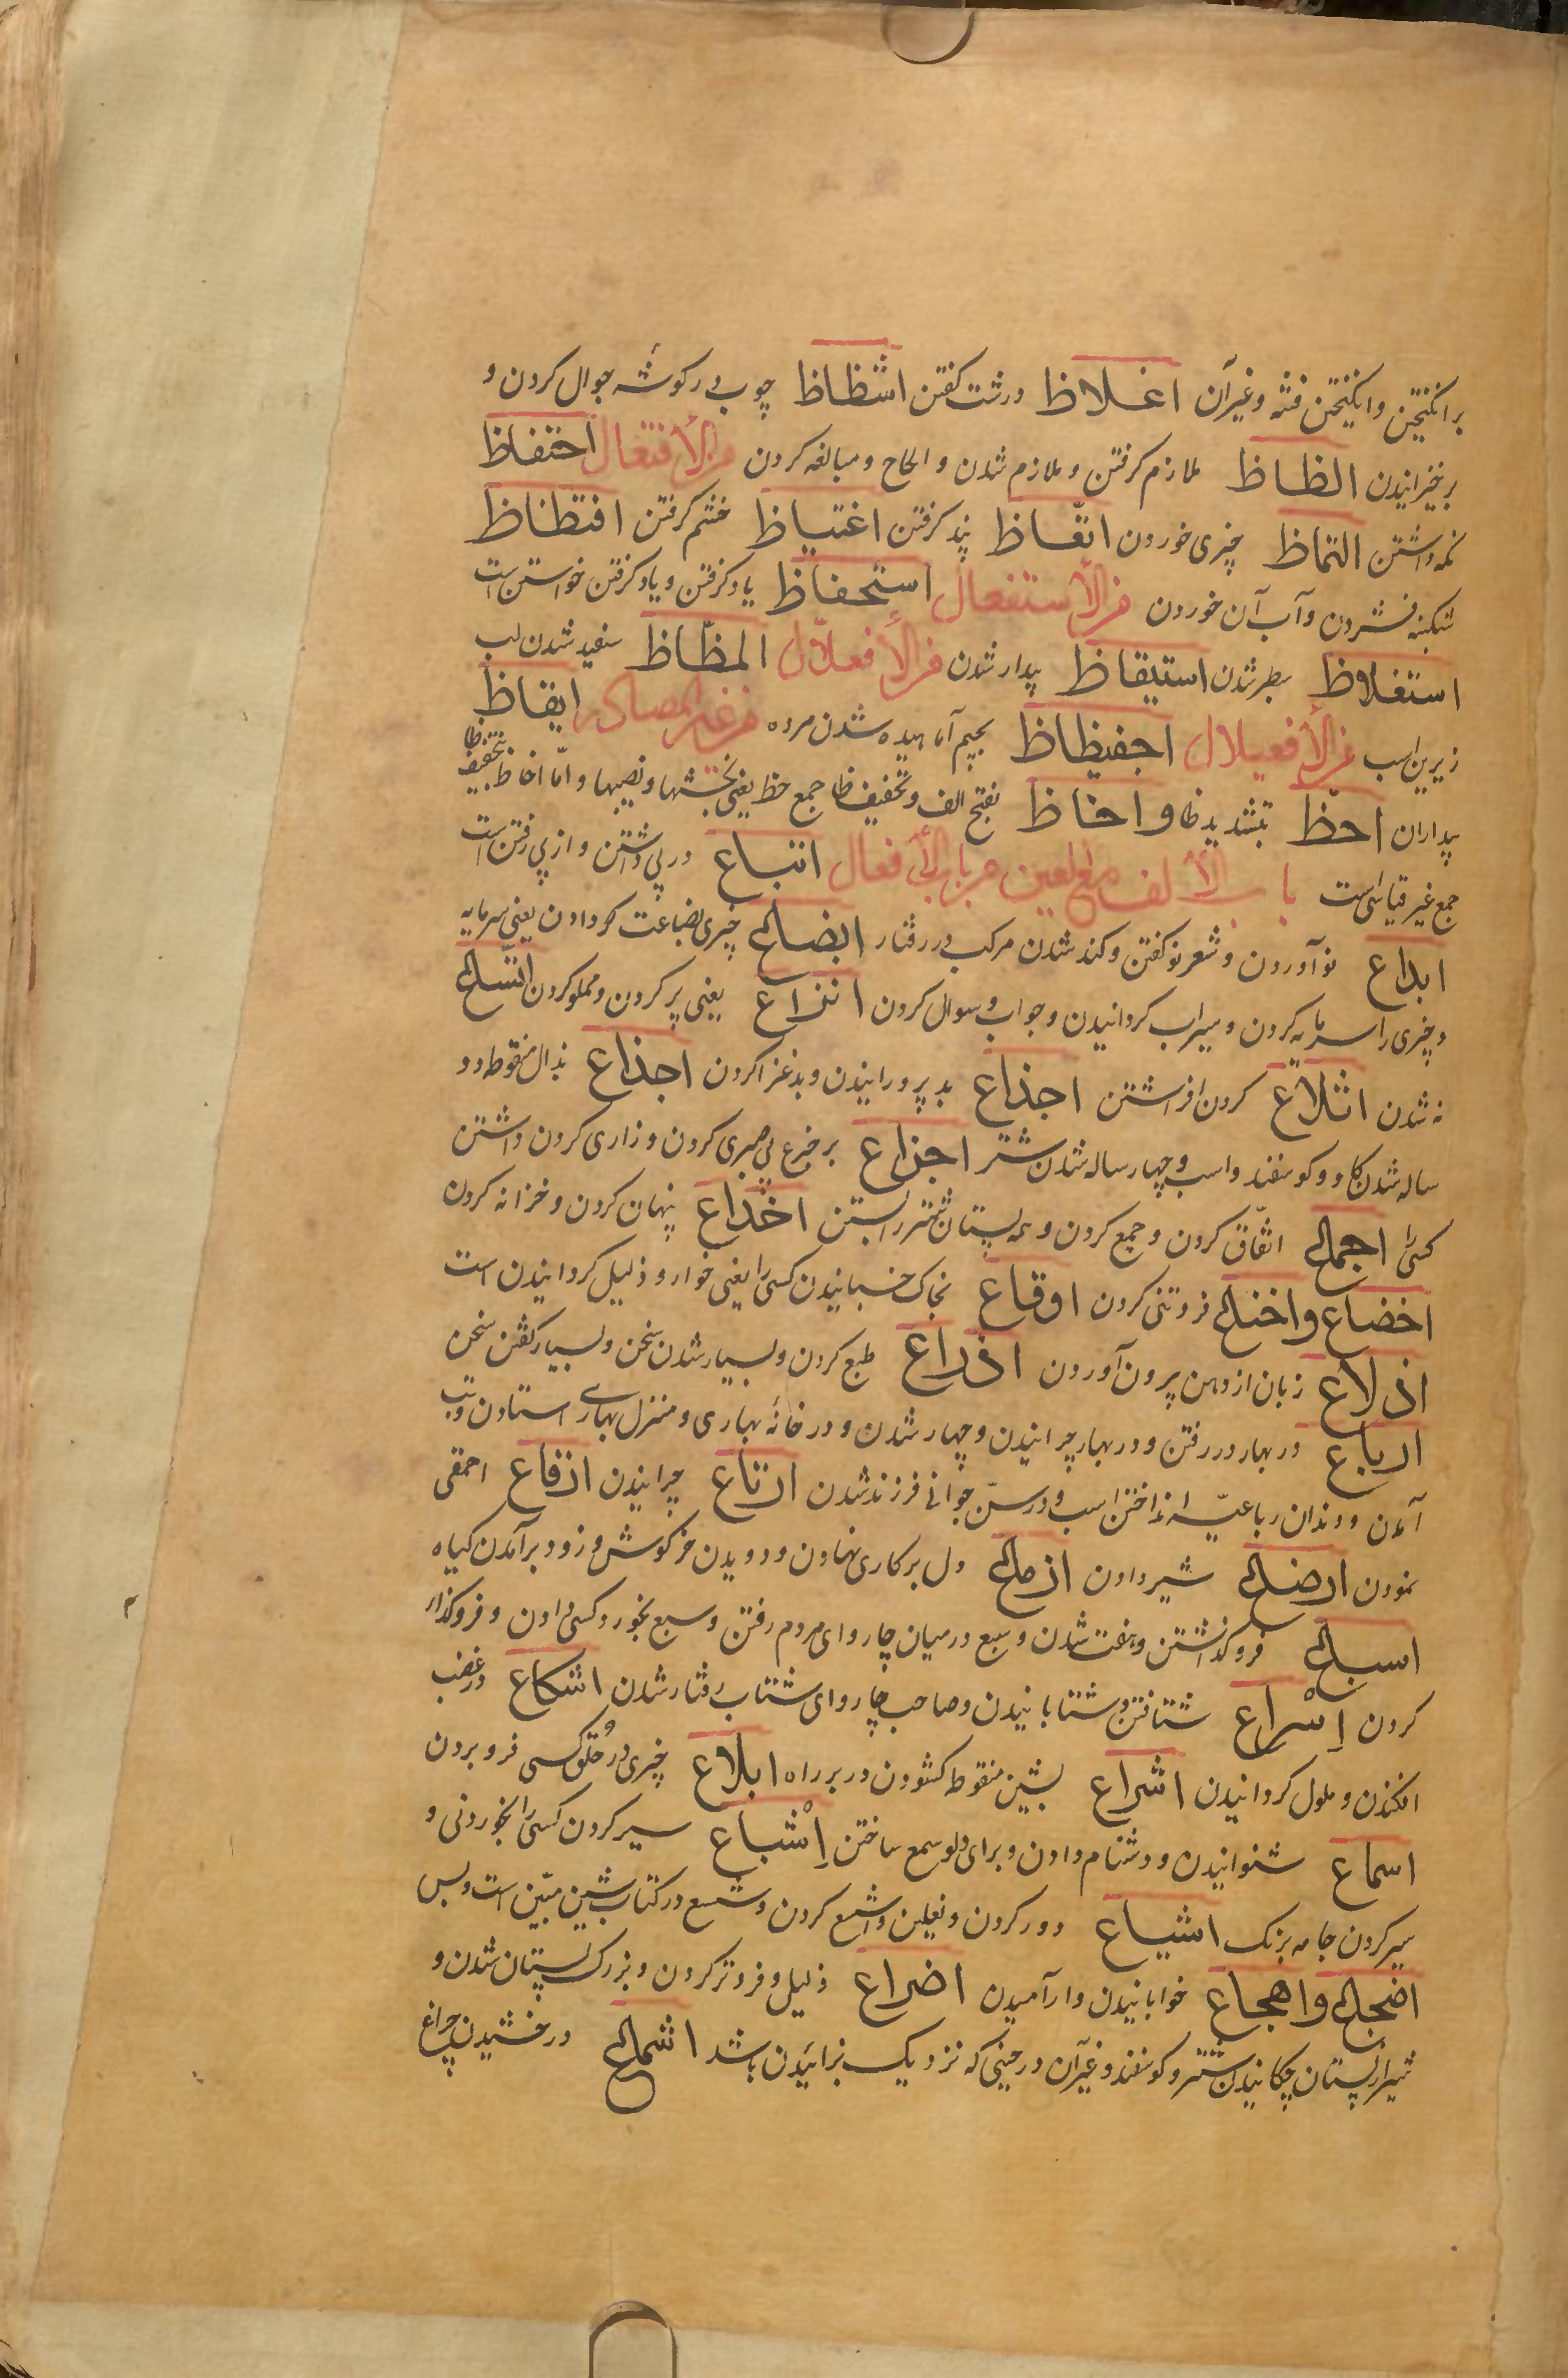 برانکیختن وانکیختن فتنه وغیرآن اغلاظ درشت کفتن اشظاظ چوب در کوشه جوال کردن و
برخیزاندن الظاظ ملازم کرفتن وملازم شدن والحاح ومبالغه کردن من الأفتعال احتفاظ
نکه داشتن التماظ چیزی خوردن اتّعاظ پند کرفتن اغتیاظ خشم کرفتن افتظاظ
شکنبه فشردن وآب آن خوردن من الأستفعال استحفاظ یاد کرفتن ویاد کرفتن خواستن است
استغلاظ سطبر شدن استیقاظ بیدار شدن من الأفعلّال المظّاظ سفید شدن لب
زیرین اسب من الأفعیلال اجفیظاظ بجیم آماهیده شدن مرده من غیر المصادر ایقاظ
بیداران احظّ بتشدید ظا واحاظ بفتح الف وتخفیف ظا جمع حظ یعنی بخشها ونصیبها وامّا احاظ بتخفیف ظا
جمع غیر قیاسی است باب الألف مع العین من باب الأفعال اتباع در پی داشتن واز پی رفتن است
ابداع نو آوردن وشعر نو کفتن وکند شدن مرکب در رفتار ابضاع چیزی بضاعت کردادن یعنی سرمایه
وچیزی را سرمایه کردن وسیراب کردانیدن وجواب وسوال کردن انزاع یعنی پر کردن ومملو کردن اتساع
نه شدن اتلاع کردن افراشتن اجداع بد پرورانیدن وبد غذا کردن اجذاع بذال منقوطه دو
ساله شدن کاو وکوسفند واسب وچهار ساله شدن شتر اجزاع بر جزع بی صبری کردن وزاری کردن داشتن
کسیرا اجماع اتّفاق کردن وجمع کردن وهمه پستان شتر را بستن اخداع پنهان کردن وخزانه کردن
اخضاع واخناع فروتنی کردن اوقاع بخاک خسبانیدن کسی را یعنی خوار وذلیل کردانیدن است
اذلاع زبان از دهن بیرون آوردن اذراع طبع کردن وبسیار شدن سخن وبسیار کفتن سخن
ارباع در بهار در رفتن ودر بهار چرانیدن وچهار شدن ودر خانهٔ بهاری ومنزل بهاری استادن وتب
آمدن ودندان رباعیه انداختن اسب ودر سنّ جوانی فرزند شدن ارتاع چرانیدن ارقاع احمقی
نمودن ارضاع شیر دادن ازماع دل بر کاری نهادن ودویدن خرکوش وزود برآمدن کیاه
اسباع فرو کذاشتن وهفت شدن وسبع درمیان چاروای مردم رفتن وسبع بخورد کسی دادن وفروکذار
کردن اِسْراع شتافتن وشتابانیدن وصاحب چاروای شتاب رفتار شدن اشکاع در غضب
افکندن وملول کردانیدن اشراع بشین منقوط کشودن در بر راه ابلاع چیزی در حلق کسی فرو بردن
اسماع شنوانیدن ودشنام دادن وبرای دلو سمع ساختن اِشْباع سیر کردن کسی را بخوردنی و
سیر کردن جامه برنک اشیاع دور کردن ونعلین وا شسع کردن وشسع در کتاب شین مبیّن است وبس
اضجاع واهجاع خوابانیدن وارآمیدن اضراع ذلیل وفروتر کردن وبزرک پستان شدن و
شیر از پستان چکانیدن شتر وکوسفند وغیرآن در حینی که نزدیک بزائیدن باشد اشماع درخشیدن چراغ